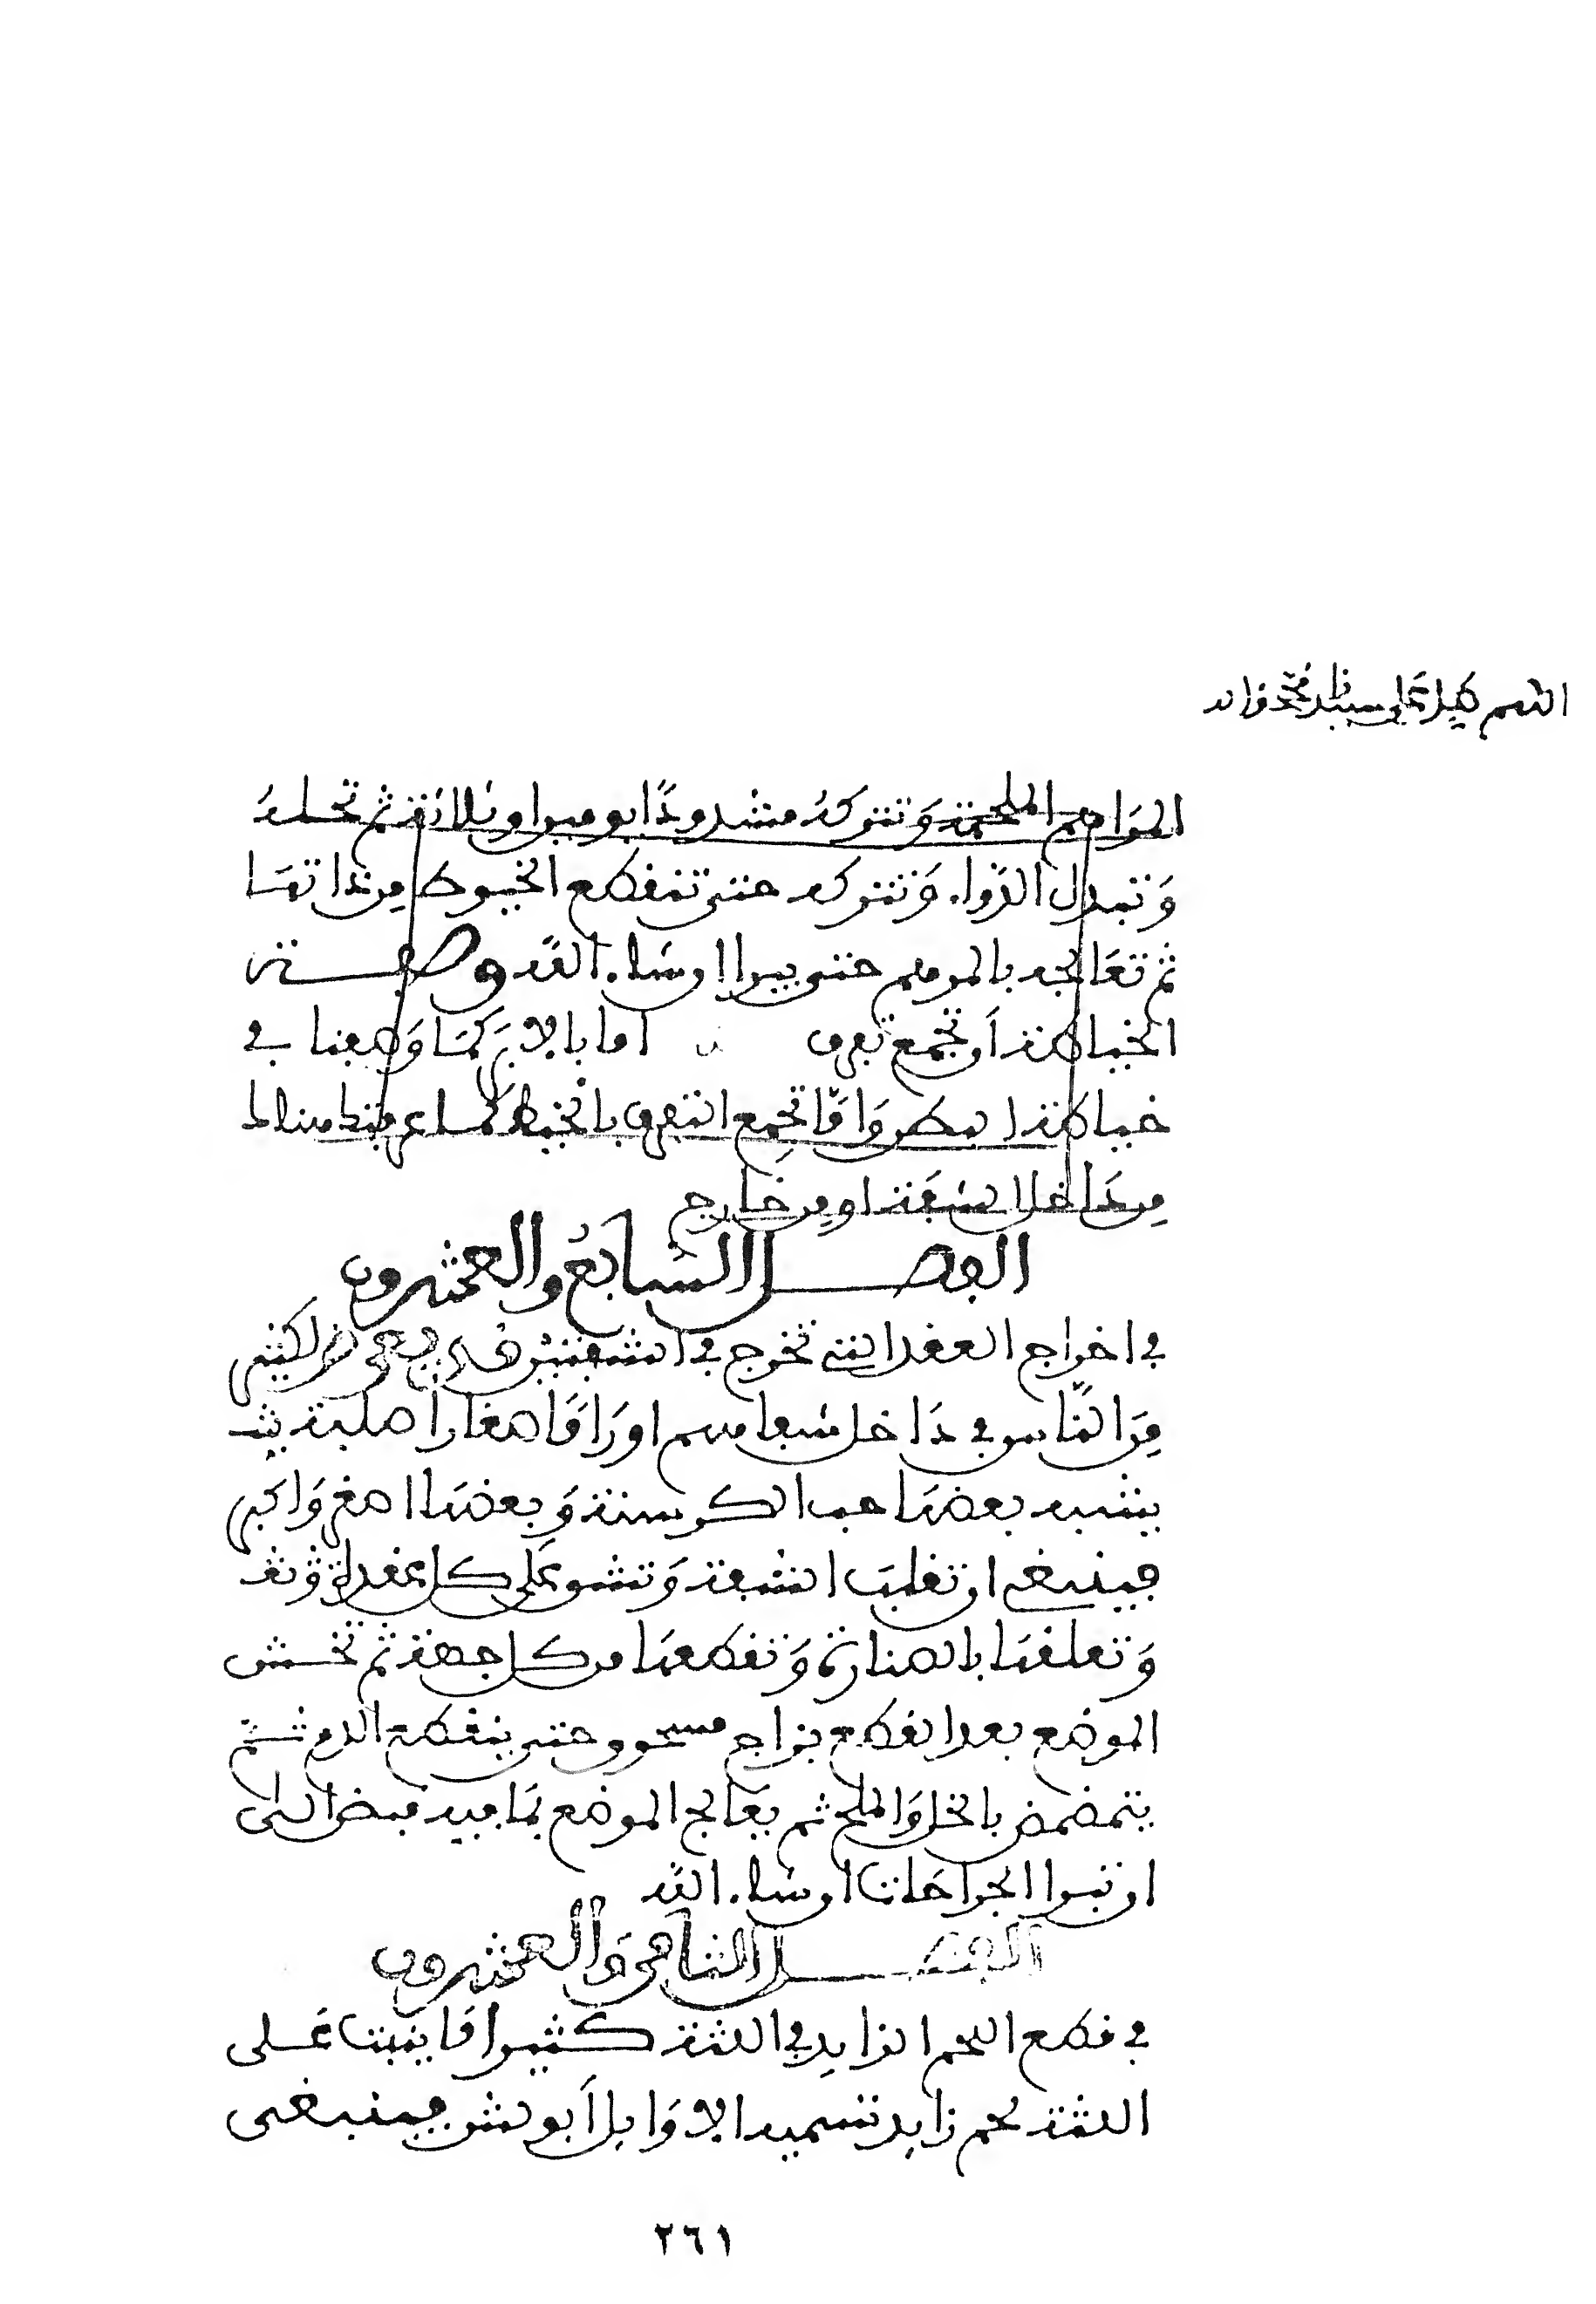 اللهم صل على سيدنا محمد واله
المراهم الملحمة وتتركه مشدودا يومين او ثلاثة ثم تحله
وتبدل الدواء وتتركه حتى تنقطع الخيوط من ذاتها
ثم تعالجه بالمرهم حتى يبرا ان شاء الله وصفة
الخياطة ان تجمع تفرق اما بالابر كما وصفنا في
خياطة البطن واما تجمع التفرق بالخيط كما عرفتك هناك
من داخل الشفة او من خارج
الفصل السابع والعشرون
في اخراج العقد التي تخرج في الشفتين قد يعرض لكثير
من الناس في داخل شفاههم اوراما صغارا صلبة يش
يشبه بعضها حب الكرسنة وبعضها اصغر واكبر
فينبغي ان تقلب الشفة وتشق على كل عقدة وتع
وتعلقها بالصنارة وتقطعها من كل جهة ثم تحش
الموضع بعد القطع بزاج مسحوق حتى ينقطع الدم ثم
يتمضمض بالخل والملح ثم يعالج الموضع بما فيه قبض الى
ان تبرا الجراحات ان شاء الله
الفصل الثامن والعشرون
في قطع اللحم الزايد في اللثة كثيرا ما ينبت على
اللثة لحم زايد تسميه الاوايل ابولس فينبغي
٢٦١